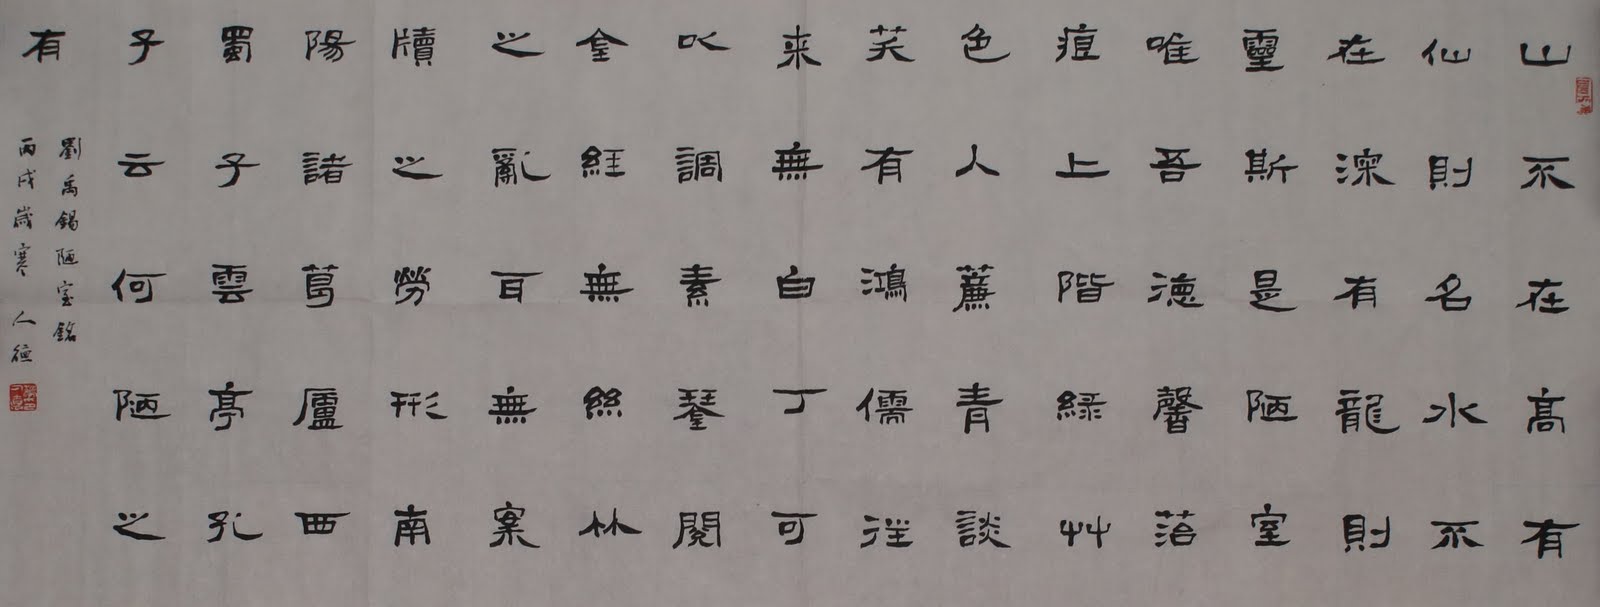 山不在高有
仙則名水不
在深有龍則
靈斯是陋室
唯吾德馨菭
痕上階緑艸
色入簾青談
笑有鴻儒往
来無白丁可
以調素琴閱
金經無絲竹
之亂耳無案
牘之勞形南
陽諸葛廬西
蜀子雲亭孔
子云何陋之
有
劉禹錫陋室銘
丙戌歲寒 人德